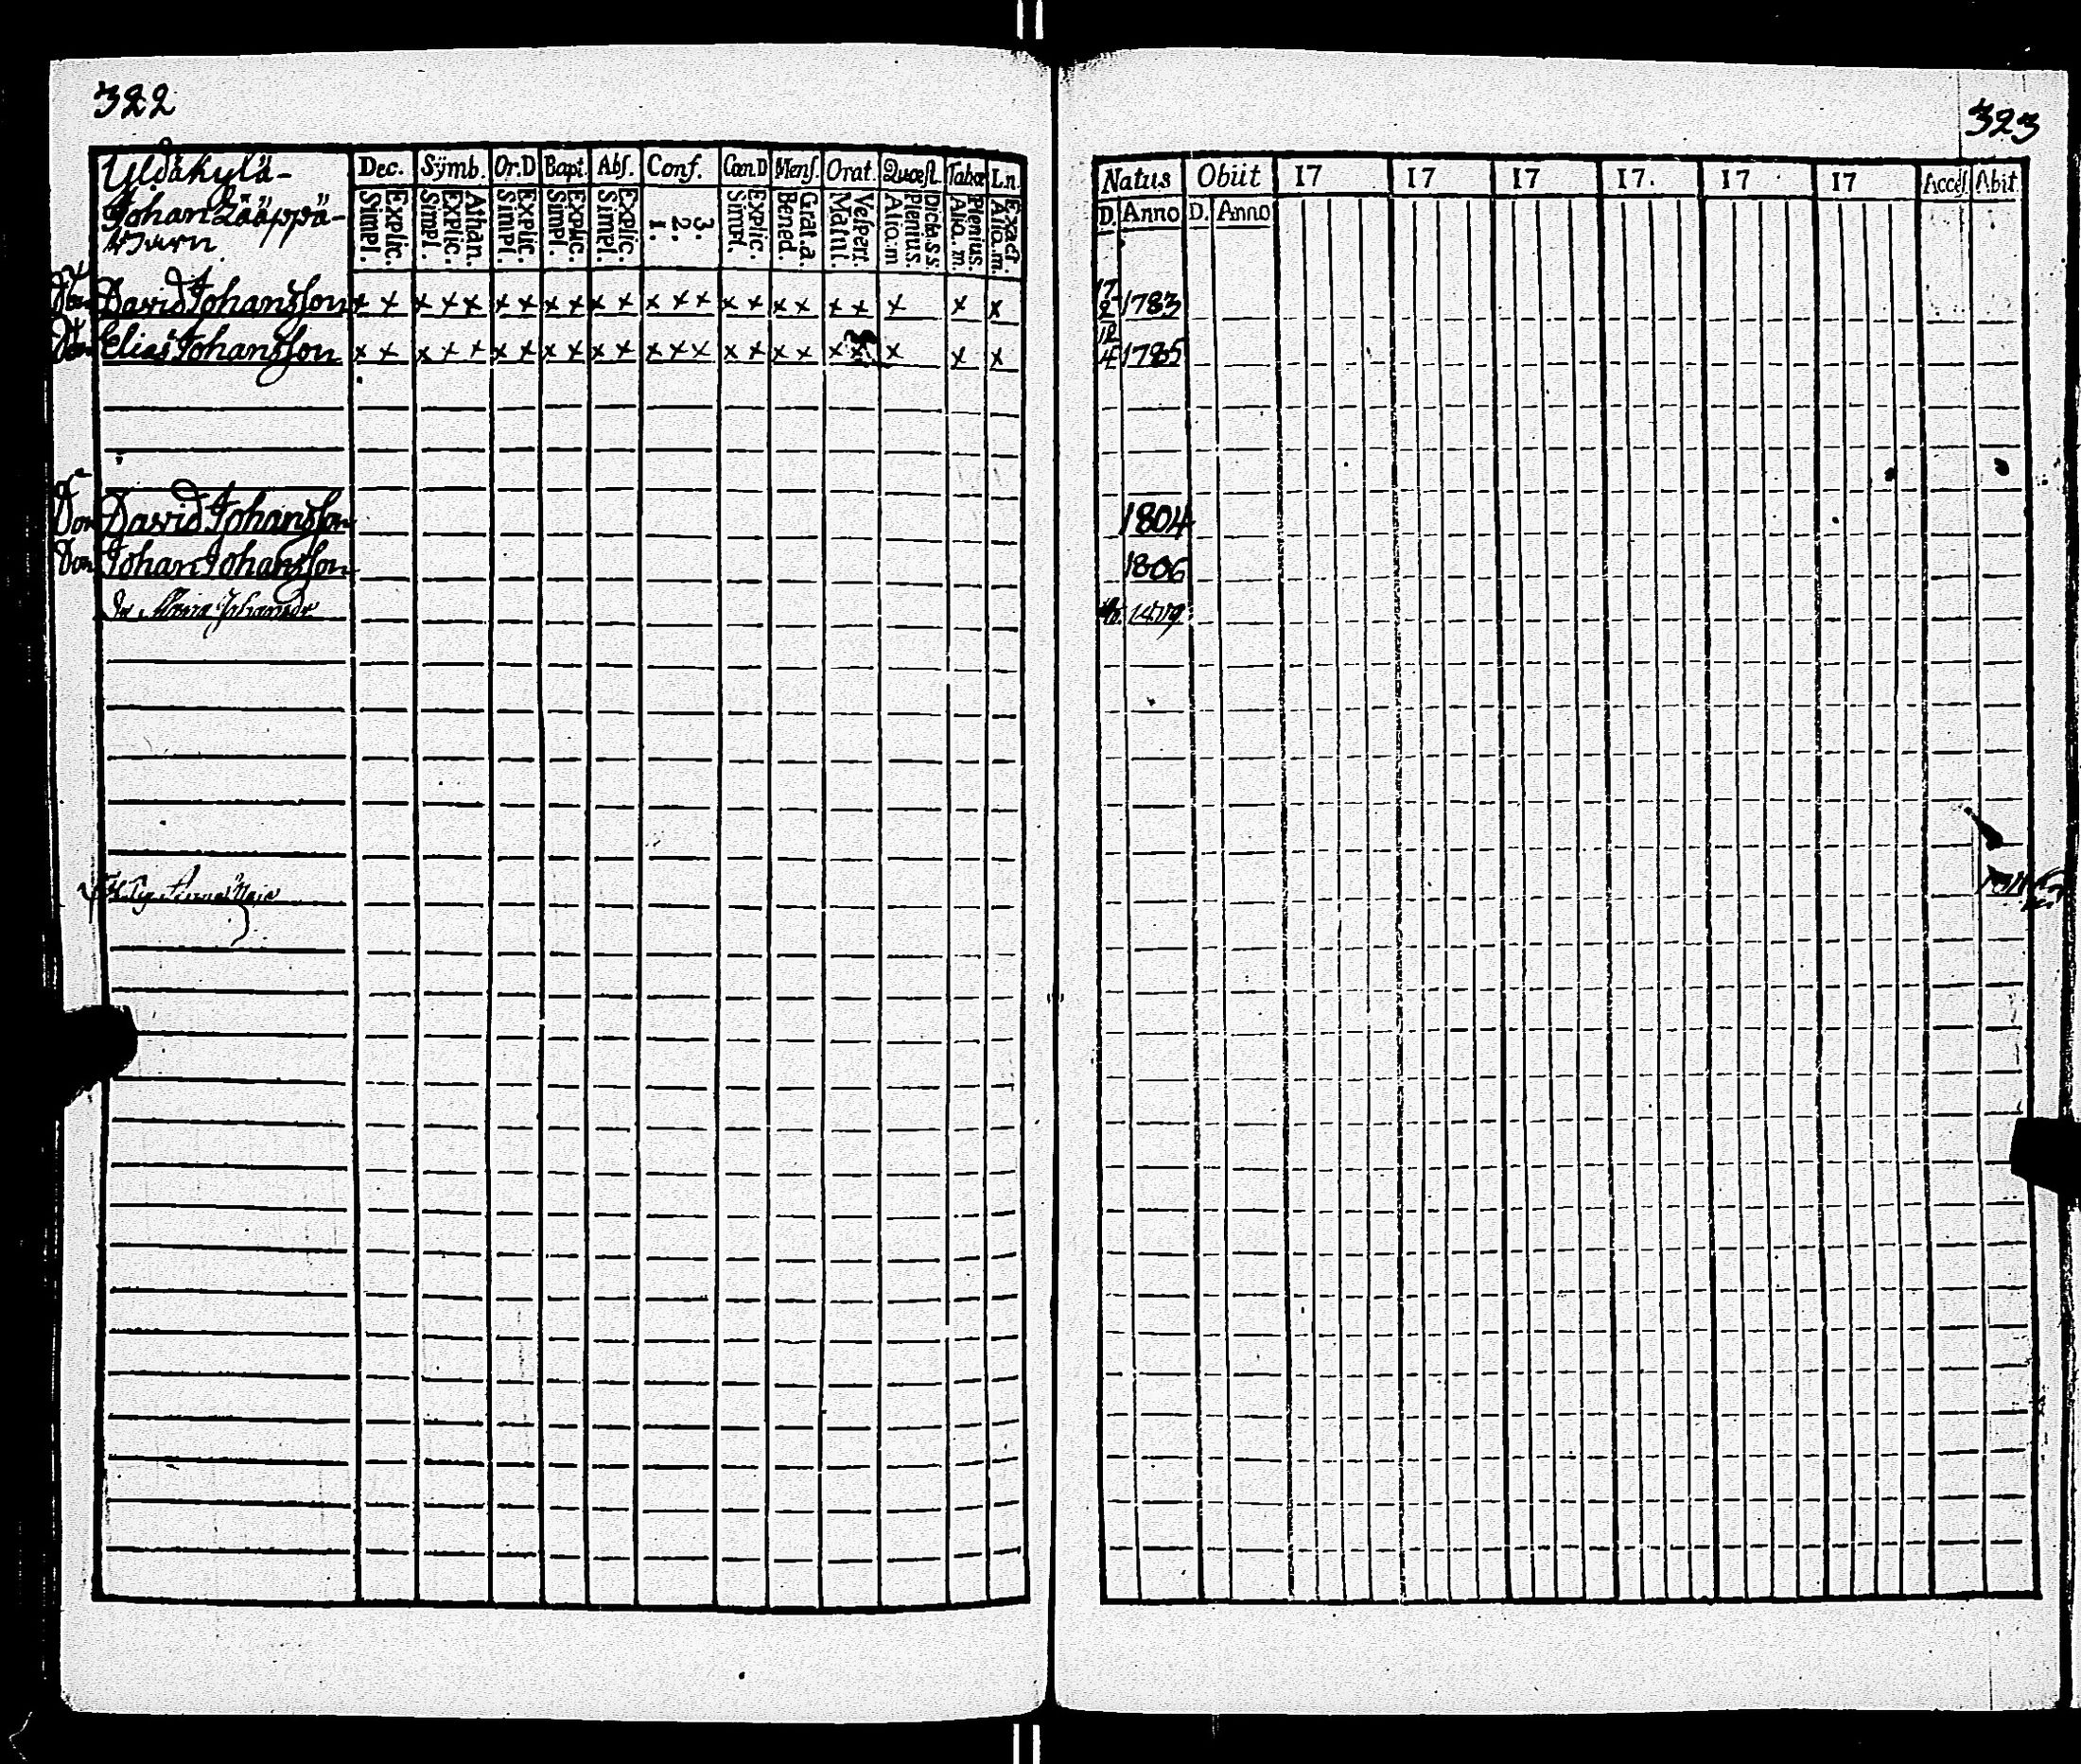 322
Yldäkylä-
Johan Lääppä-
Barn
Dec. Sÿmb. Or.D Bapt. Abſ. Conf. Cœn.D Menſ. Orat. Quœſt. Tabœ Ln.
Simpl. Explic. Simpl. Explic. Athan. Simpl. Explic. Simpl. Explic. Simpl. Explic. 1. 2. 3. Simpl. Explic. Bened. Grat.a. Matut. Veſpert. Alio.m Plenius. Dicta.S.S. Alio.m. Plenius. Alio.m. Exact.
Son David Johansson x x x x x x x x x x x x x x x x x x x x x x x
Son Elias Johansson x x x x x x x x x x x x x x x x x x x x x x x
Son David Johansson
Son Johan Johansson
dr Maria Johansdr
Anna Maja
323
Natus Obiit 17 17 17 17. 17 17 Acceſ. Abit.
D. Anno D. Anno
17/2 1783
12/4 1785
1804
1806